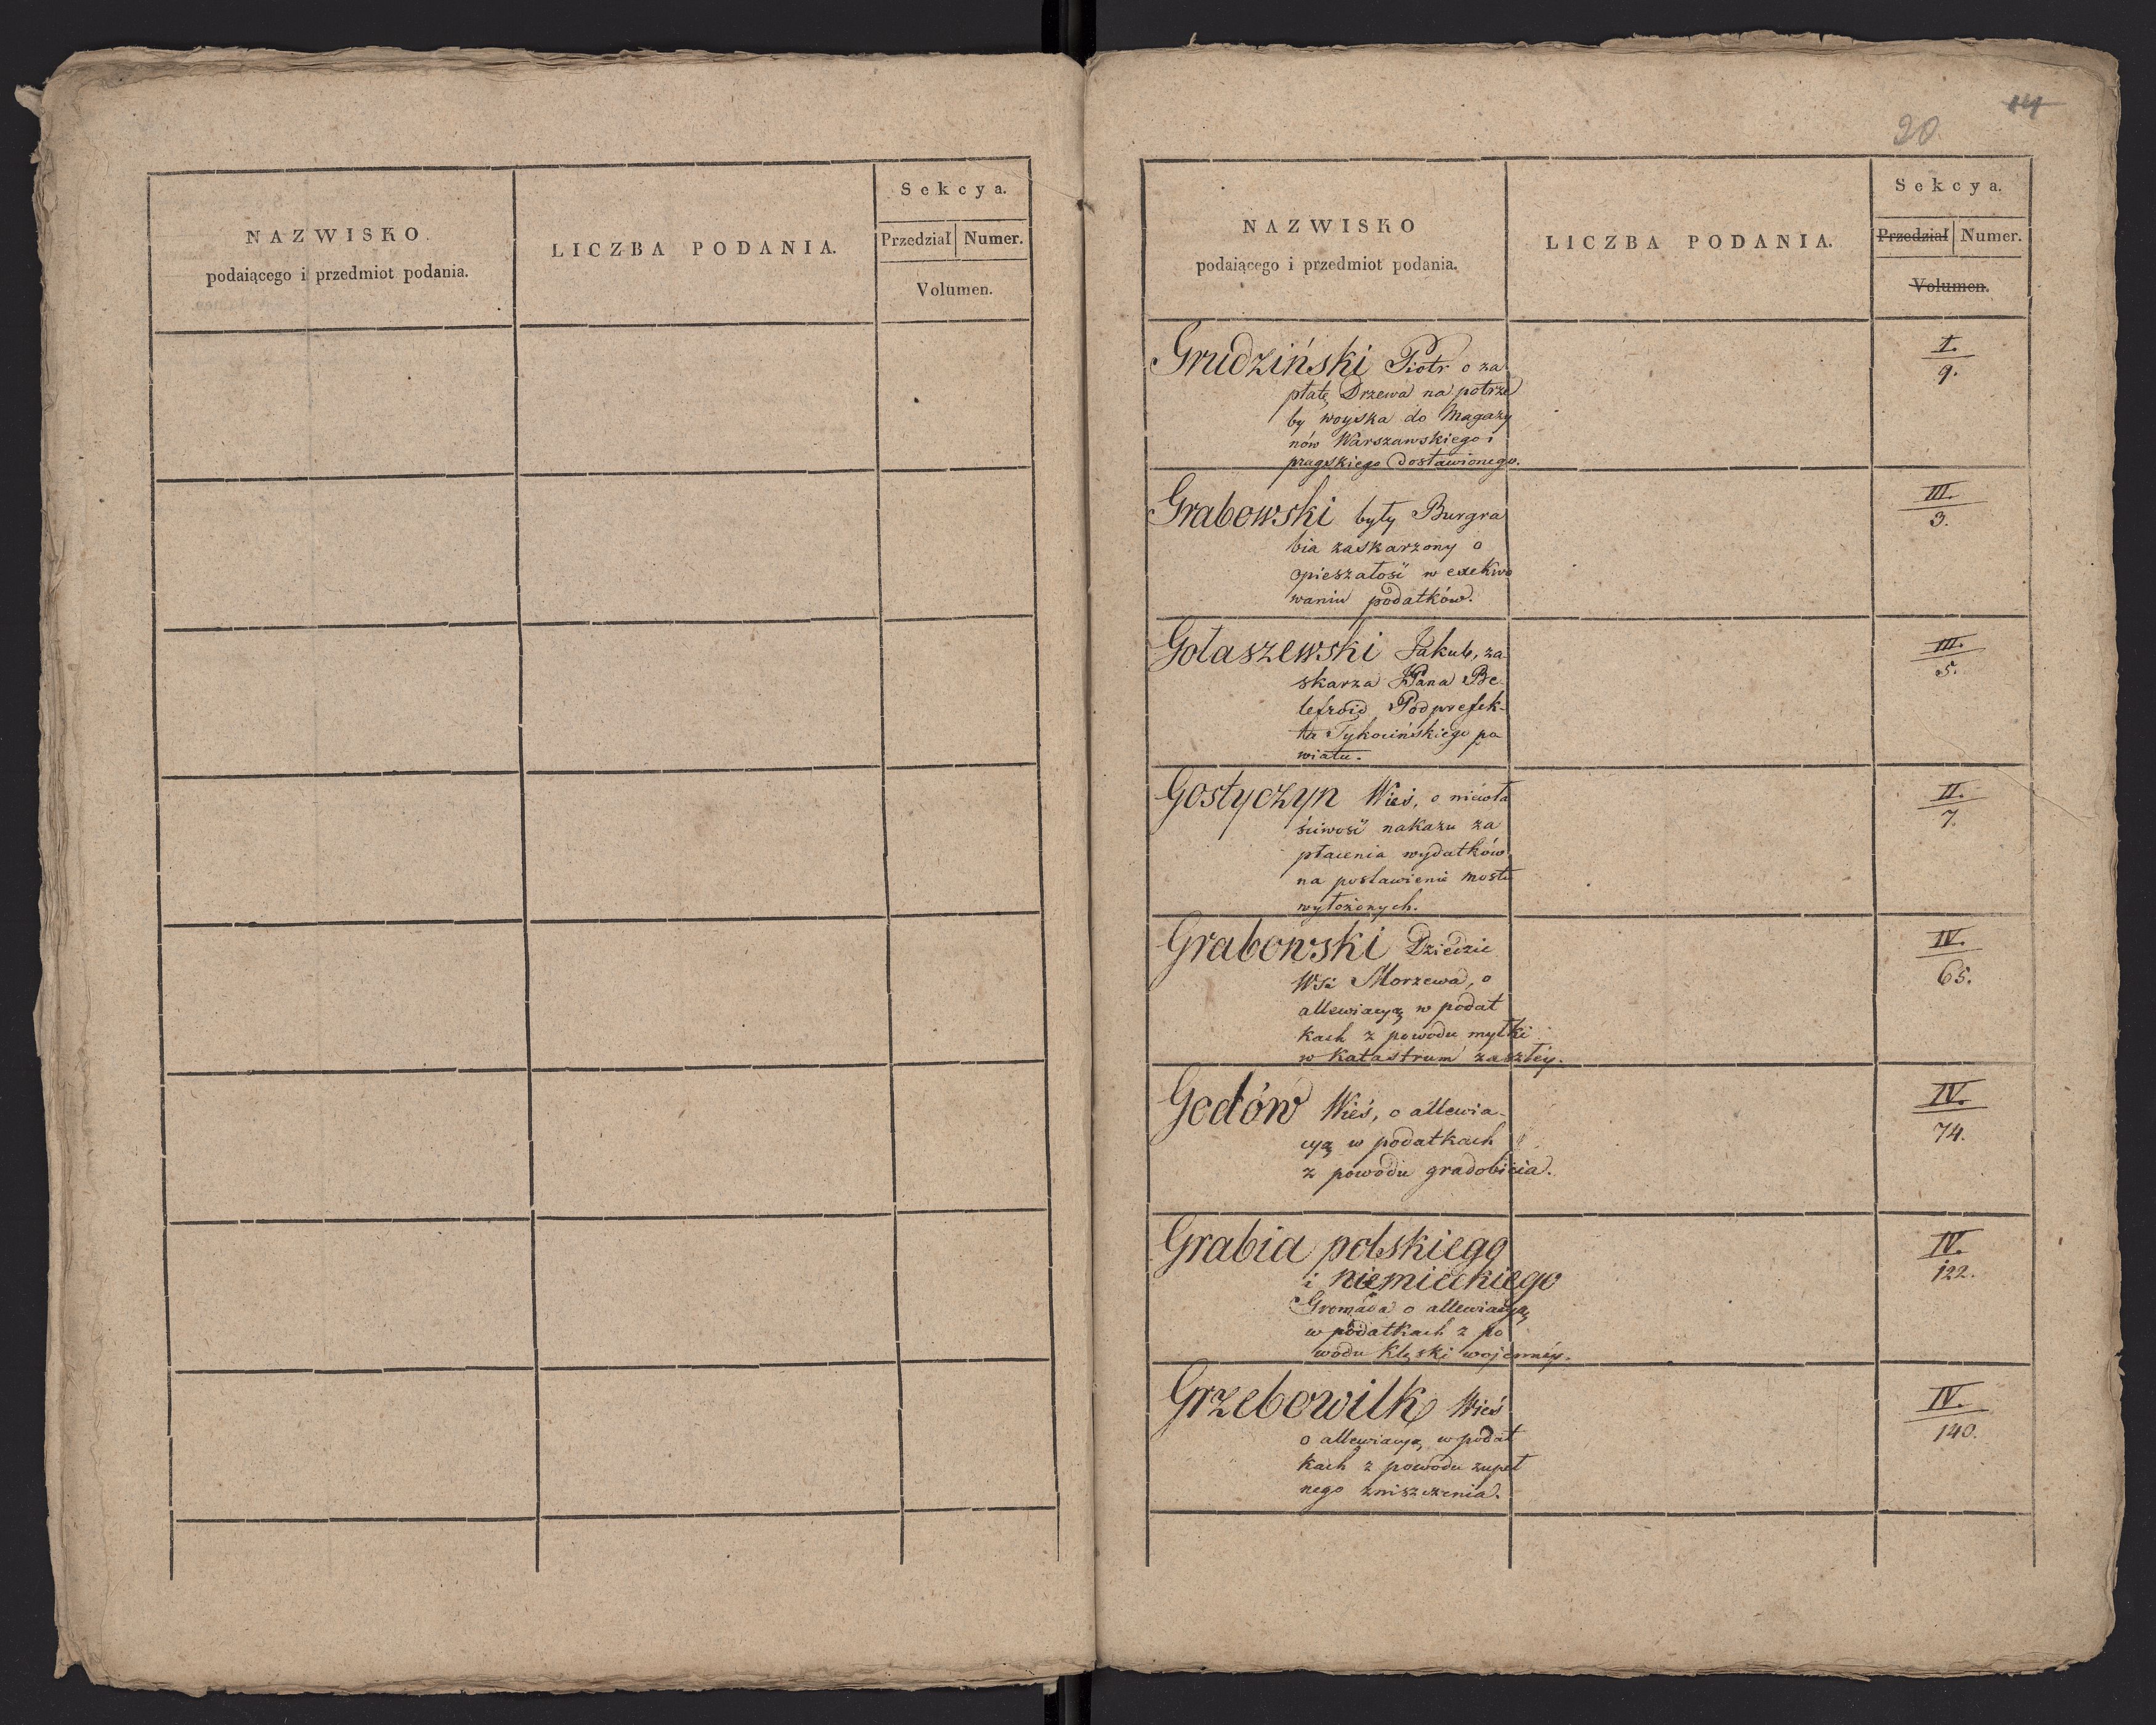 NAZWISKO
podaiącego i przedmiot podania.
LICZBA PODANIA.
Sekcya.
Przedział Numer.
Volumen.
20.
NAZWISKO
podaiącego i przedmiot podania.
LICZBA PODANIA.
Sekcya.
Przedział Numer.
Volumen.
Grudziński Piotr o za
płatę Drzewa na potrze
by woyska do Magazy
nów Warszawskiego i
pragskiego dostawionego.
I.
9.
Grabowski były Burgra
bia zaskarzony o
opieszałość w exekwo
waniu podatków.
III.
3.
Gołaszewski Jakub, za-
skarza JPana Be-
lefroid Podprefek-
ta Tykocińskiego po
wiatu.
III.
5.
Gostyczyn Wieś, o niewła
ściwość nakazu za
płacenia wydatków
na postawienie mostu
wyłożonych.
II.
7.
Grabowski Dziedzic
Wsi Morzewa, o
allewiacyą w podat
kach z powodu myłki
w katastrum zaszłey.
IV.
65.
Godów Wieś, o allewia-
cyą w podatkach
z powodu gradobicia.
IV.
74.
Grabia polskiego
i niemieckiego
Gromada o allewiacyą
w podatkach z po
wodu klęski wojennéy.
IV.
122.
Grzebowilk Wieś
o allewiacyą w podat
kach z powodu zupeł
nego zniszczenia.
IV.
140.